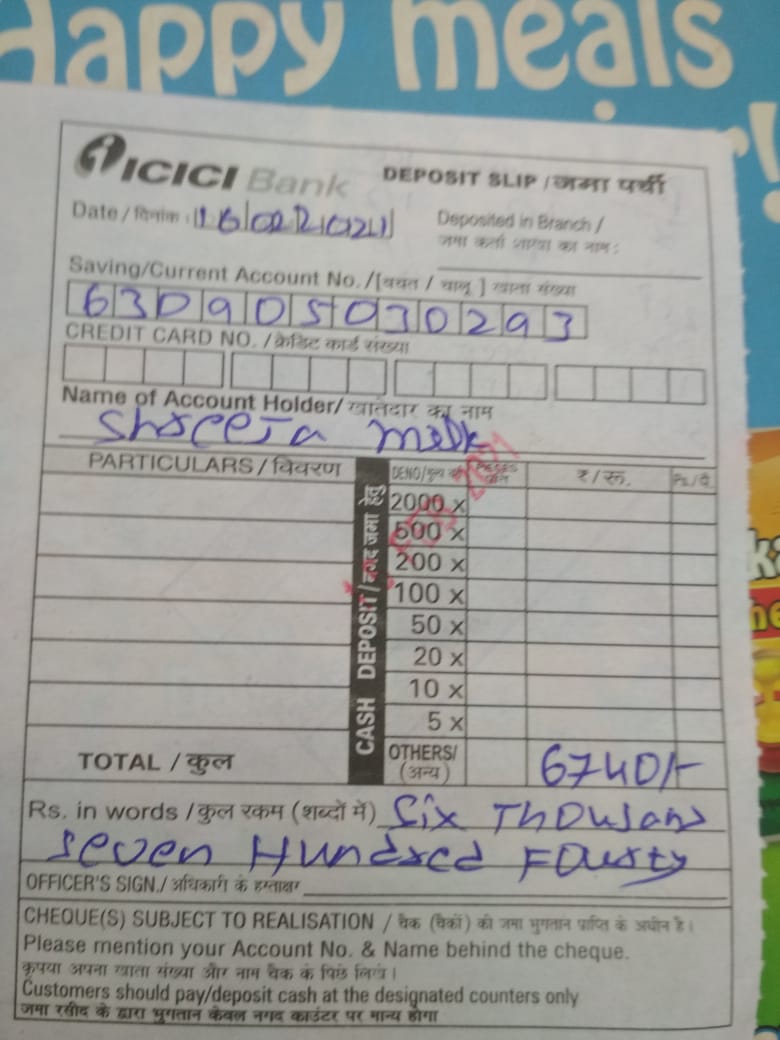 Happy meals
ICICI Bank DEPOSIT SLIP / जमा पर्ची
Date / दिनांक : 16022021 Deposited in Branch /
जमा कर्ता शाखा का नाम :
Saving/Current Account No. /[बचत / चालू ] खाता संख्या
630905030293
CREDIT CARD NO. / क्रेडिट कार्ड संख्या
Name of Account Holder/ खातेदार का नाम
Shreeja milk
PARTICULARS / विवरण CASH DEPOSIT/नगद जमा हेतु DENO/मूल्य PIECES ₹ / रू. Ps./पै.
FEB 2021
2000 x
500 x
200 x
100 x
50 x
20 x
10 x
5 x
TOTAL / कुल OTHERS/ (अन्य) 6740/-
Rs. in words / कुल रकम (शब्दों में) Six Thousand
Seven Hundred Fourty
OFFICER'S SIGN./ अधिकारी के हस्ताक्षर
CHEQUE(S) SUBJECT TO REALISATION / चैक (चैकों) की जमा भुगतान प्राप्ति के अधीन है।
Please mention your Account No. & Name behind the cheque.
कृपया अपना खाता संख्या और नाम चैक के पिछे लिखे।
Customers should pay/deposit cash at the designated counters only
जमा रसीद के द्वारा भुगतान केवल नगद काउंटर पर मान्य होगा